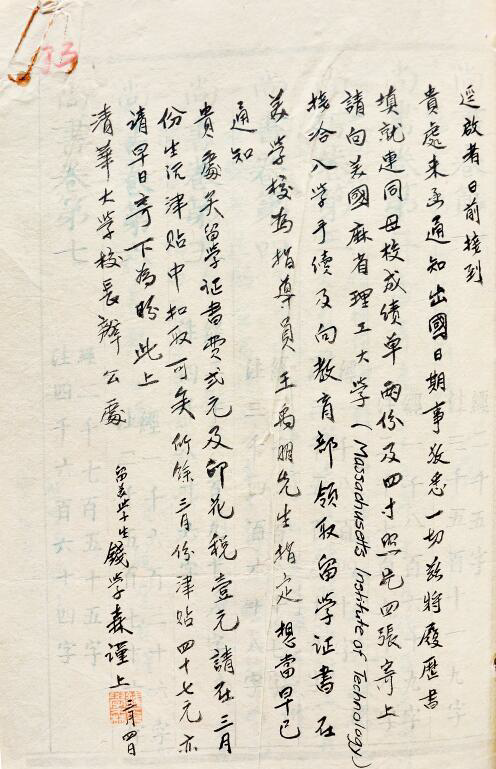 逕啟者日前接到
貴處来函通知出國日期事敬悉一切兹將履歷書
填就連同母校成績单兩份及四寸照片四張寄上
請向美國麻省理工大学(Massachusetts Institute of Technology)
接洽入学手續及向教育部領取留学証書 在
美学校為指導員王助明先生指定 想當早已
通知
貴處矣留学証書费弍元及印花税壹元請在三月
份生活津贴中扣取可矣所餘三月份津贴四十七元亦
請早日寄下為盼此上
清華大学校長辦公處
留美学生錢学森謹上
三月四日
33